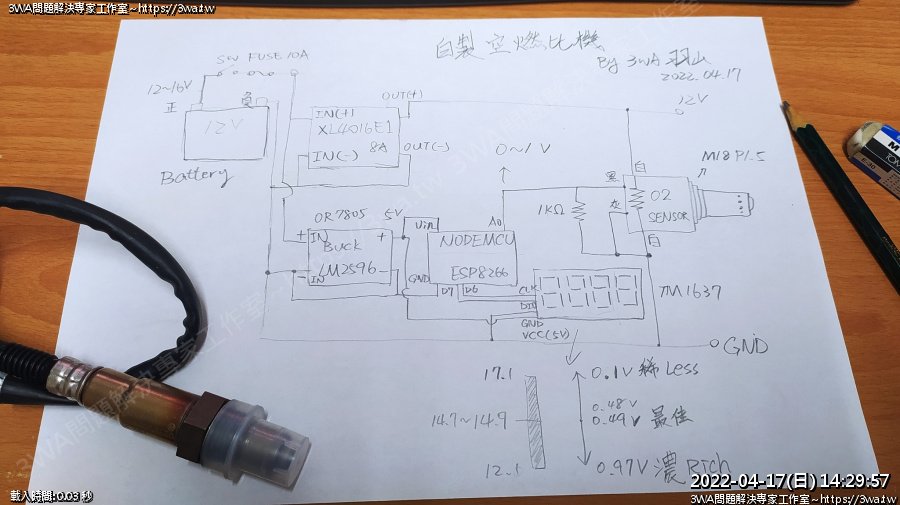 3WA問題解決專家工作室~https://3wa.tw
3WA問題解決專家工作室~https://3wa.tw
自製空燃比機
By 3WA 羽山
2022.04.17
SW FUSE 10A
12~16V
正
負
12V
Battery
IN(+)
OUT(+)
XL4016E1
8A
IN(-)
OUT(-)
0~1V
12V
M18 P1.5
白
黑
灰
白
O2
SENSOR
1KΩ
OR 7805
5V
+ IN
+
BUCK
LM2596
-
- IN
Vin
A0
NODEMCU
ESP8266
GND
D7
D6
CLK
DIO
GND
VCC(5V)
8888
TM1637
GND
17.1
0.1V 稀 Less
14.7~14.9
0.48V
0.49V 最佳
12.1
0.97V 濃 Rich
3WA問題解決專家工作室
載入時間: 0.03 秒
2022-04-17(日) 14:29:57
3WA問題解決專家工作室~https://3wa.tw